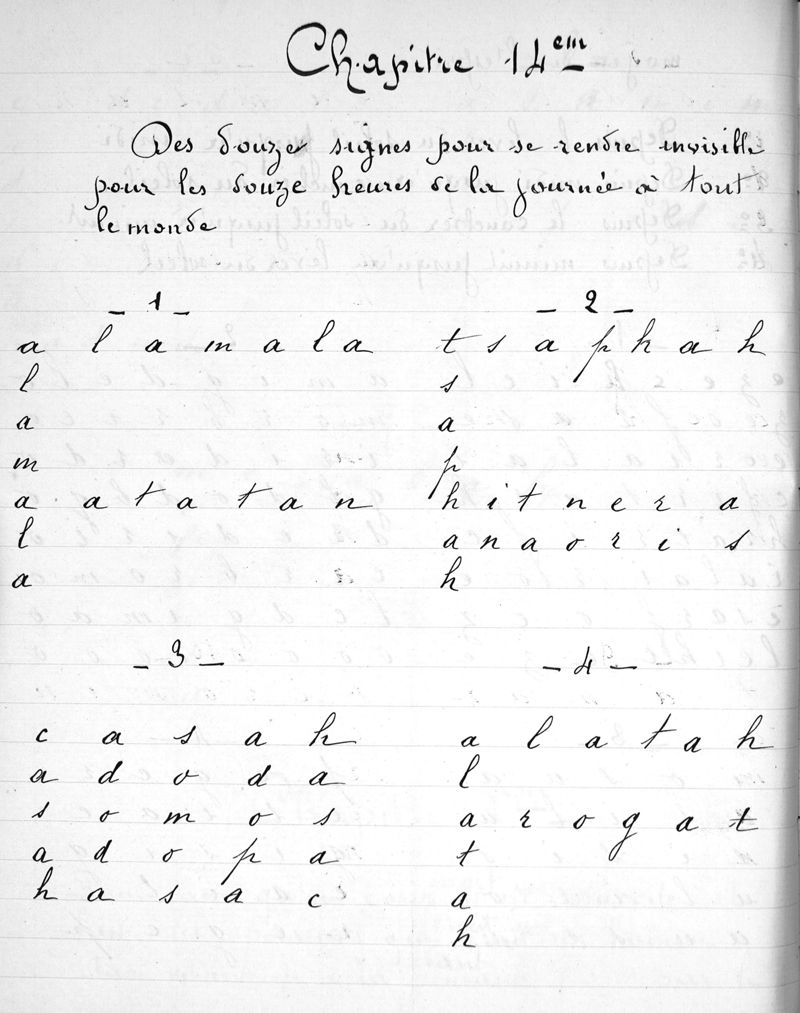 Chapitre 14em
Des douze signes pour se rendre invisible
pour les douze heures de la journée à tout
le monde
- 1 -
a l a m a l a
l
a
m
a a t a t a n
l
a
- 2 -
t s a p h a h
s
a
p
h i t n e r a
a n a o r i s
h
- 3 -
c a s a h
a d o d a
s o m o s
a d o p a
h a s a c
- 4 -
a l a t a h
l
a r o g a t
t
a
h